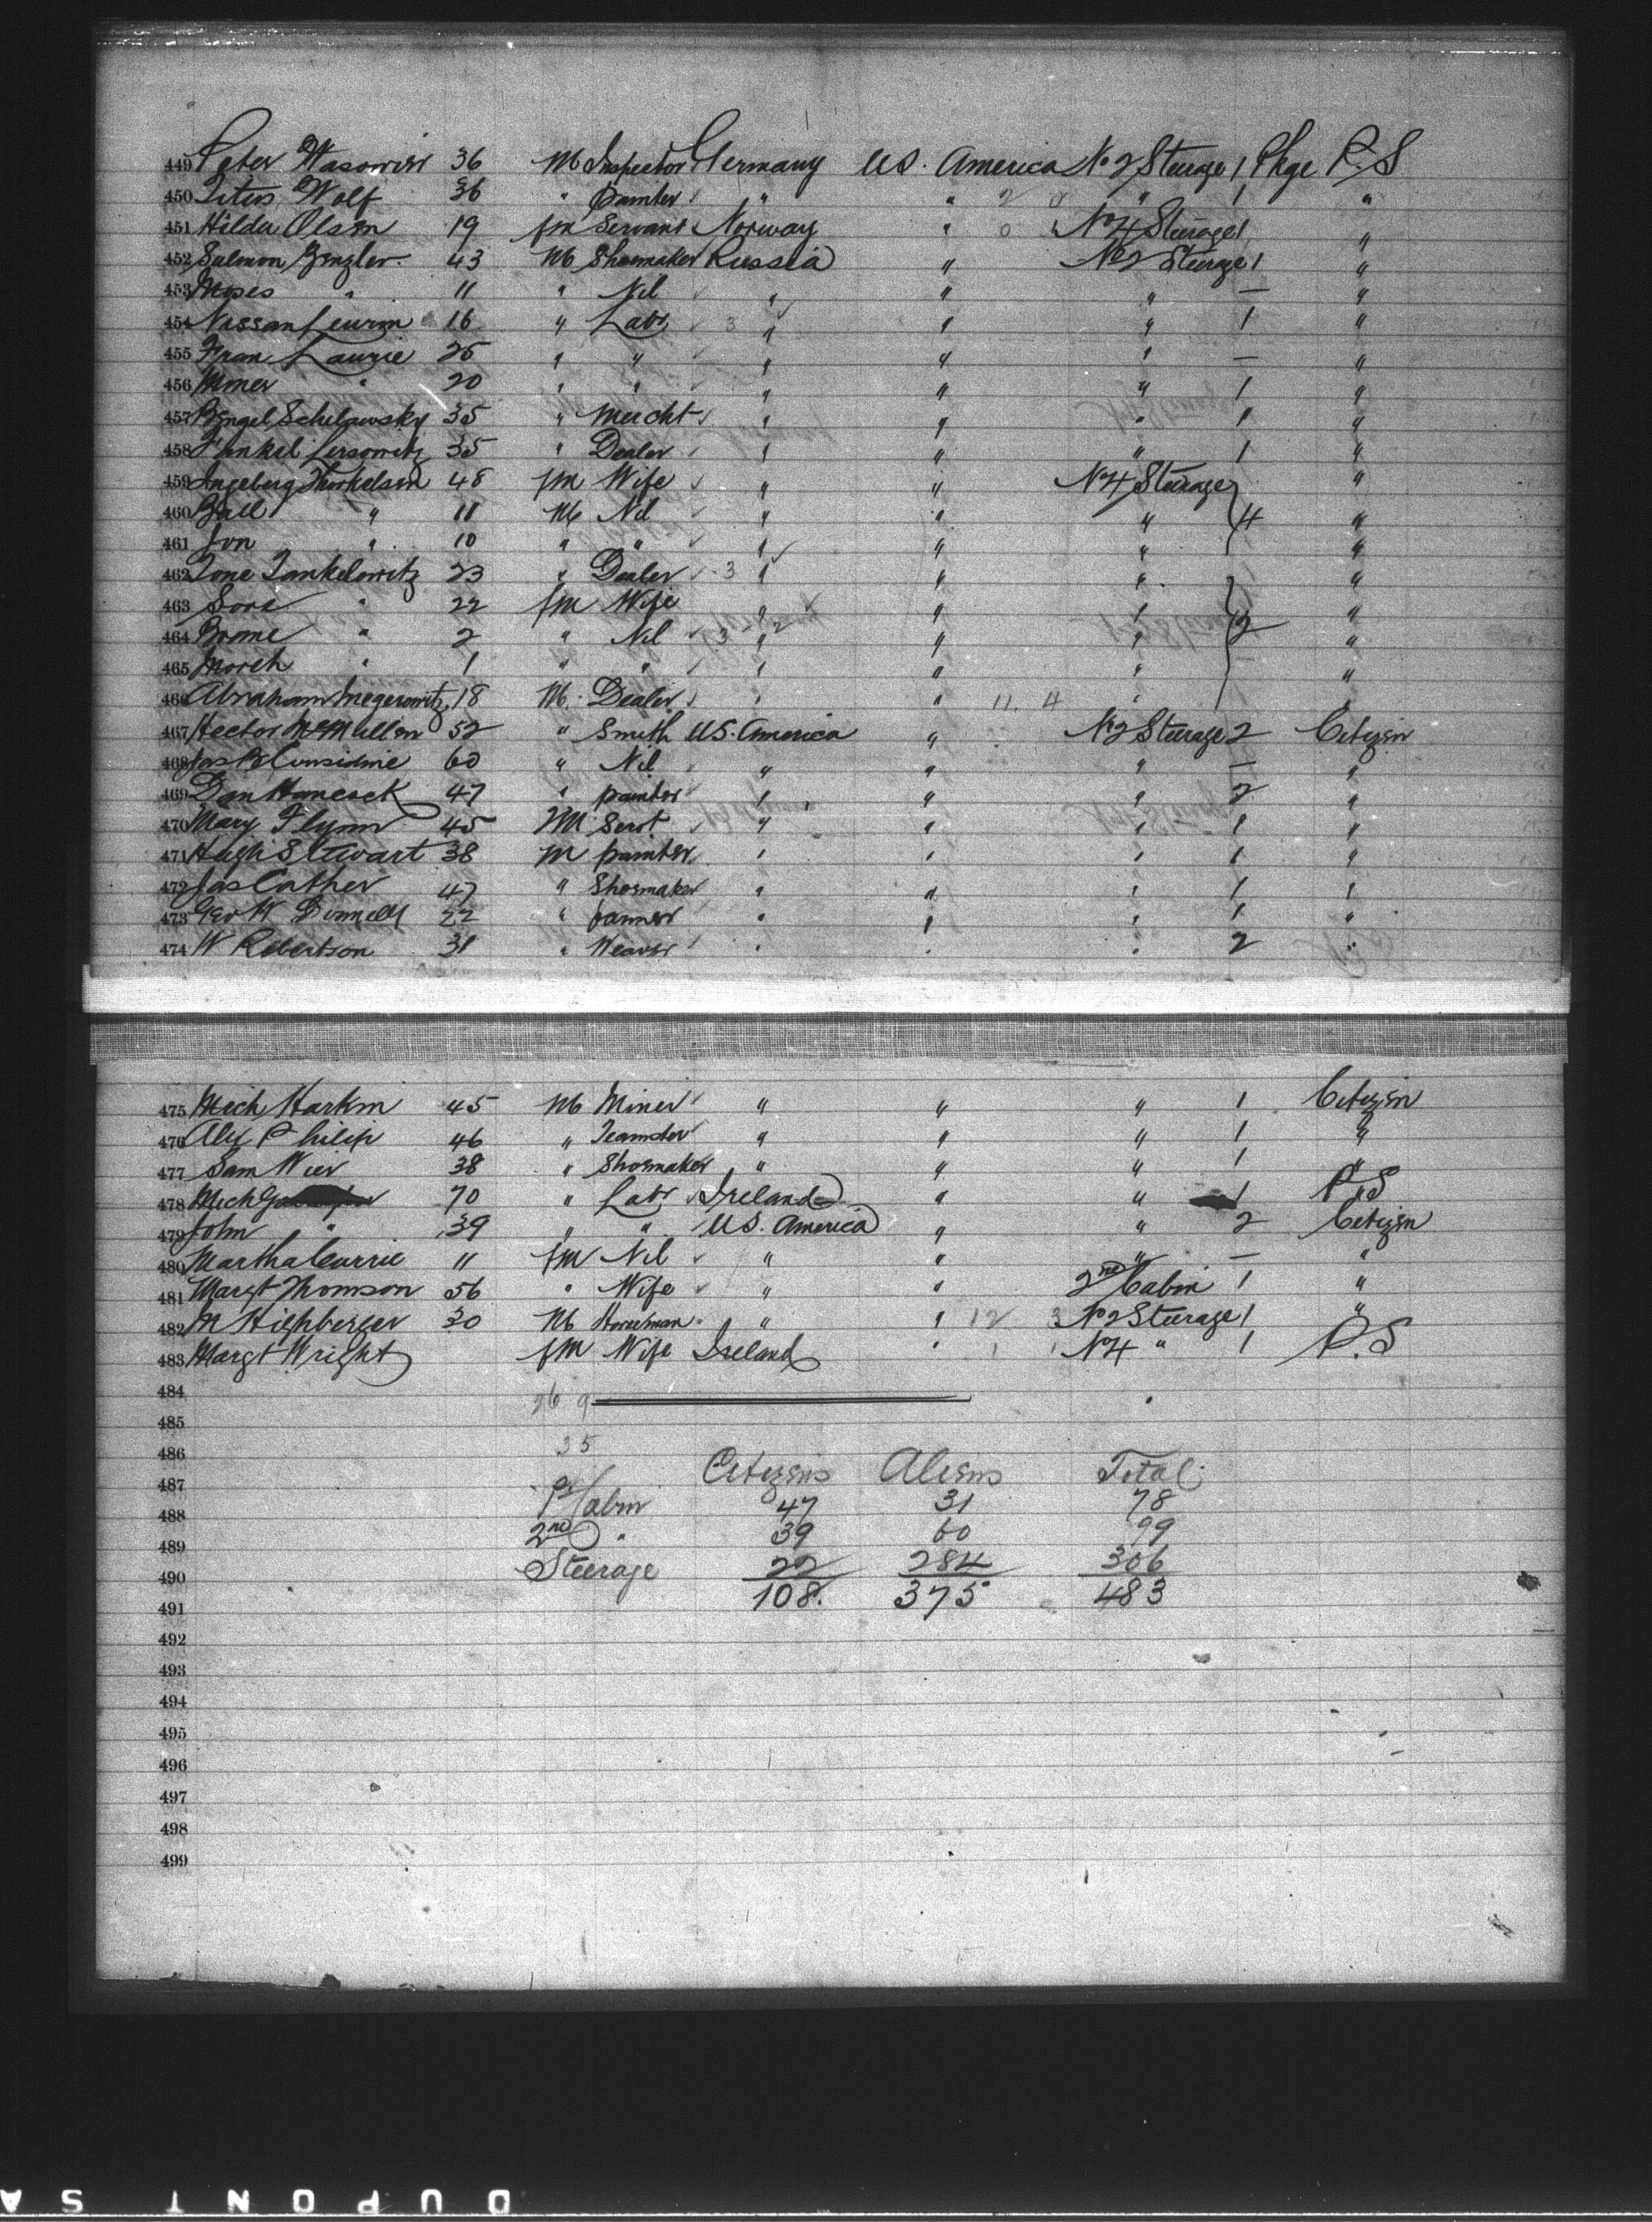 449 Peter Wasowier 36 M Inspector Germany U.S. America No 2 Steerage 1 Pkge P.S
450 Titus Wolf 36 " Painter " " " 1 "
451 Hilda Olsen 19 fm Servant Norway " No 4 Steerage 1 "
452 Salmon 43 M Shoemaker Russia " No 2 Steerage 1 "
453 Moses " 11 " Nil " " " — "
454 Nissan 16 " Labr 3 " " " 1 "
455 Laurie 25 " " " " " — "
456 " 20 " " " " " 1 "
457 35 " Mercht " " " 1 "
458 35 " Dealer " " " 1 "
459 Ingeberg Thorkelson 48 fm Wife " " No 4 Steerage "
460 " 11 M Nil " " " 4 "
461 Jon " 10 " " " " " "
462 Tone Tankelowitz 23 " Dealer 3 " " " "
463 Sora " 22 fm Wife " " " "
464 " 2 " Nil 3 " 2 " " 2 "
465 " 1 " " " " " "
466 Abraham 18 M. Dealer " " 11. 4 " "
467 Hector McMullen 52 " Smith U.S. America " No 2 Steerage 2 Citizen
468 Considine 60 " Nil " " " — "
469 Dan Hancock 47 " painter " " " 2 "
470 Mary Flynn 45 fm Servt " " " 1 "
471 Hugh Stewart 38 m painter " " " 1 "
472 Jas Cather 47 " Shoemaker " " " 1 "
473 Geo W Donnelly 22 " farmer " " " 1 "
474 W Robertson 31 " Weaver " " " 2 "
475 Mich Harkin 45 M Miner " " " 1 Citizen
476 Alex Philip 46 " Teamster " " " 1 "
477 Sam Wier 38 " Shoemaker " " " 1 "
478 Mich 70 " Labr Ireland " " 1 P.S
479 John " 39 " " U.S. America " " 2 Citizen
480 Martha Currie 11 fm Nil " " " — "
481 Margt Thomson 56 " Wife " " 2nd Cabin 1 "
482 M 30 M Horseman " " 12 3 No 2 Steerage 1 "
483 Margt Wright fm Wife Ireland " No 4 " 1 P.S
484 26 9
485
486 35
487 Citizens Aliens Total
488 1st Cabin 47 31 78
489 2nd " 39 60 99
490 Steerage 22 284 306
491 108. 375 483
492
493
494
495
496
497
498
499
DUPONT SA